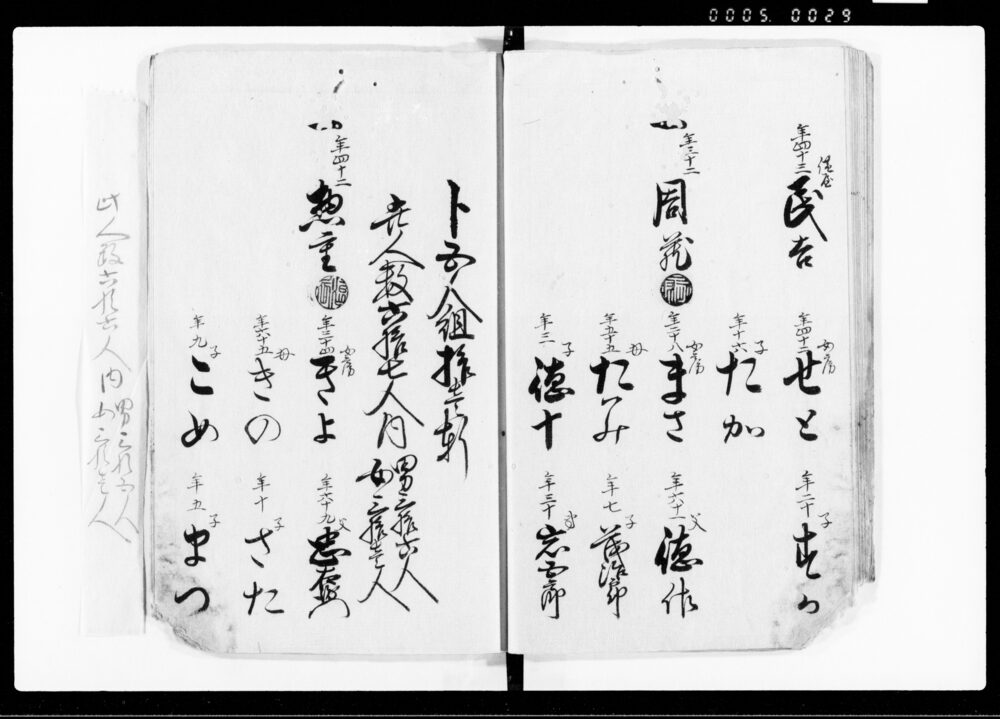 0005. 0029
年四十三 民吉
女房 年四十二 せと
子 年二十
子 年十六 たか
年三十二 周蔵
女房 年二十八 まさ
父 年六十一 徳作
母 年五十五 たみ
子 年七 茂治郎
子 年三 徳十
年三十
卜五人組拾壱軒
人数六拾七人内 男三拾六人 女三拾壱人
年四十二 惣重
女房 年三十四 きよ
父 年六十九 忠右衛門
母 年六十五 きの
子 年十 さた
子 年九 こめ
子 年五 まつ
此人数六拾六人内 男三拾五人 女三拾壱人